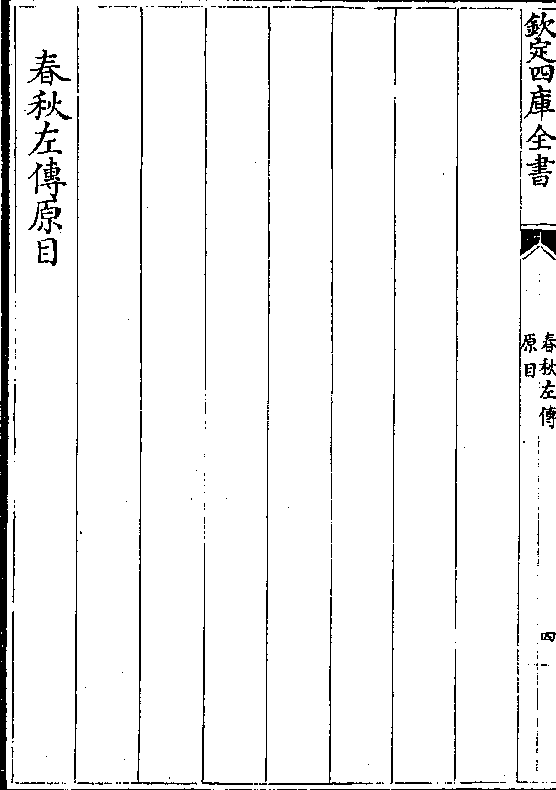 欽定四庫全書
春秋左傳
原目
四
春秋左傳原目